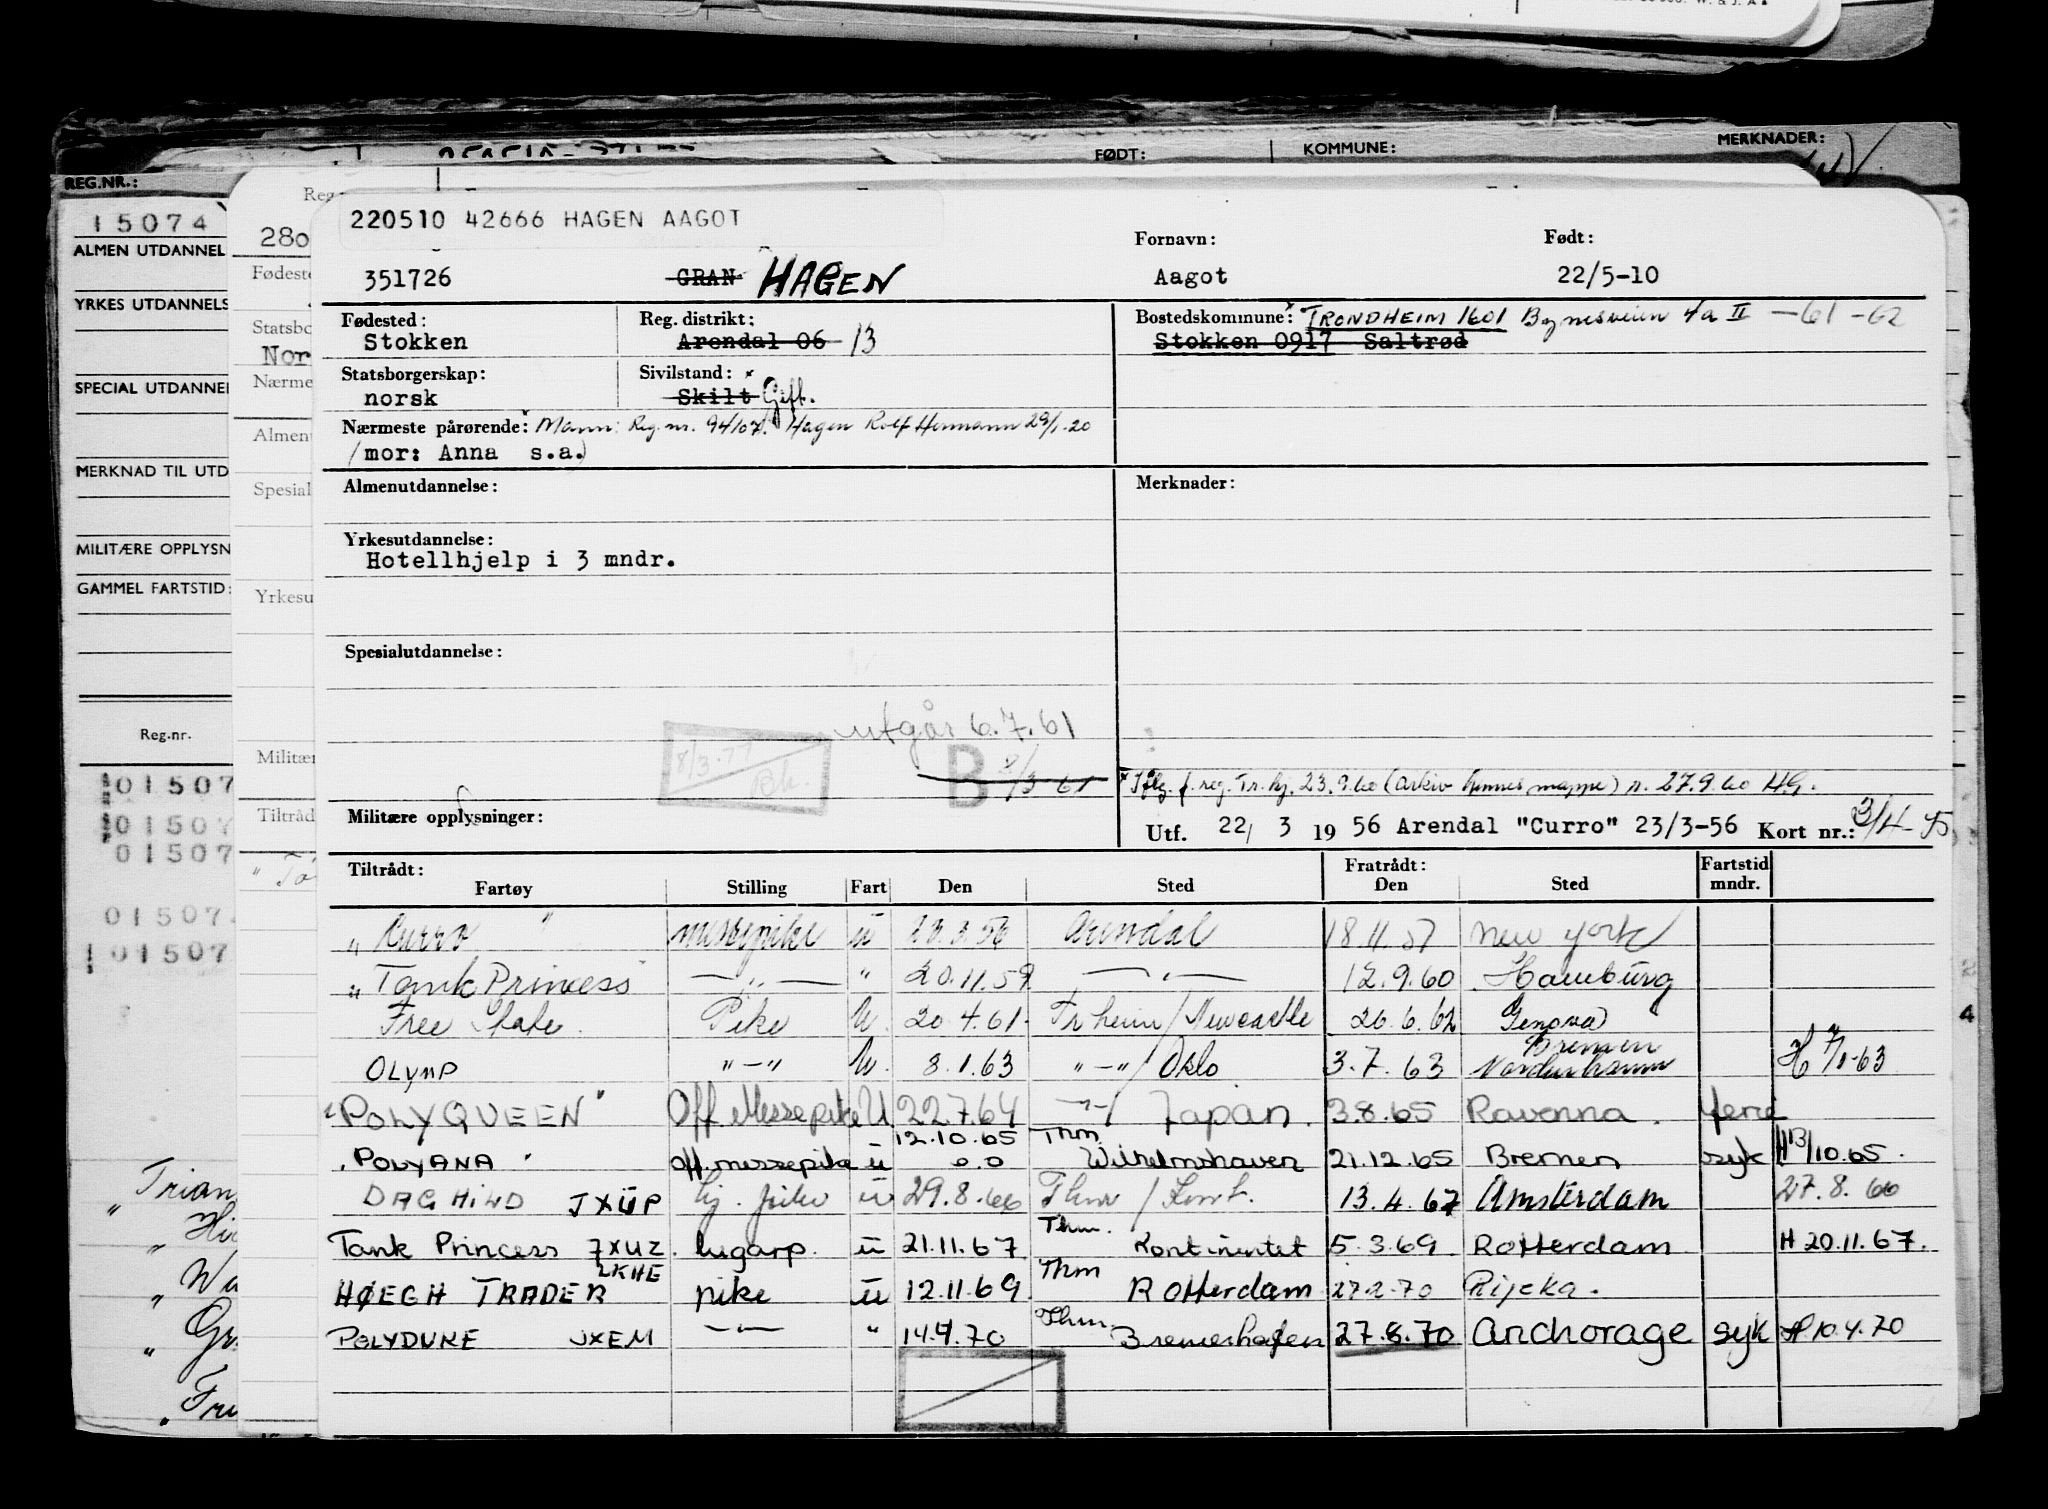 FØDT: KOMMUNE: MERKNADER:
REG.NR.:
15074
ALMEN UTDANNEL
YRKES UTDANNELS
SPECIAL UTDANNEL
MERKNAD TIL UTD
MILITÆRE OPPLYSN
GAMMEL FARTSTID:
Reg.nr.
01507
01507
01507
01507
01507
Trian
Reg
280
Fødeste
Statsbo
Nor
Nærme
Almen
Spesial
Yrkesu
Militær
Tiltråd
220510 42666 HAGEN AAGOT
Fornavn: Født:
351726 GRAN HAGEN Aagot 22/5-10
Fødested: Reg. distrikt: Bostedskommune: TRONDHEIM 1601 Bynesveien 4a II -61-62
Stokken Arendal 06 13 Stokken 0917 Saltrød
Statsborgerskap: Sivilstand:
norsk Skilt Gift.
Nærmeste pårørende: Mann: Reg.nr. 94107. Hagen Rolf Hermann 29/1-20
(mor: Anna s.a.)
Almenutdannelse: Merknader:
Yrkesutdannelse:
Hotellhjelp i 3 mndr.
Spesialutdannelse:
utgår 6.7.61
8/3.77 B 8/3-61
Iflg. f. reg. Tr.hj. 23.9.60 (arkiv hennes mappe) n. 27.9.60 H.G.
Militære opplysninger: Utf. 22/ 3 19 56 Arendal "Curro" 23/3-56 Kort nr.:
Tiltrådt: Fratrådt: Fartstid
Fartøy Stilling Fart Den Sted Den Sted mndr.
" Curro " messepike u 23.3.56 Arendal 18.11.57 New York
" Tank Princess —"— " 20.11.59 —"— 12.9.60 Hamburg
Free State. Pike U. 20.4.61. Tr.heim/Newcastle 26.6.62 Genova
OLYMP "—" U. 8.1.63 "—"/Oslo 3.7.63 Bremen Nordenham H 7/1-63
"POLYQUEEN" Off Messepike U 22.7.64 —"—/ Japan. 3.8.65 Ravenna. ferie
"POLYANA" off. messepike u 12.10.65 Thm Wilhelmshaven 21.12.65 Bremen syk H 13/10.65.
DAGHILD JXUP u 29.8.66 Thm / Kont. 13.4.67 Amsterdam 27.8.66
Tank Princess JXUZ lugarp. u 21.11.67 Thm. Kontinentet 5.3.69 Rotterdam H 20.11.67.
HØEGH TRADER LKHE pike u 12.11.69 Thm Rotterdam 27.2.70 Rijeka.
POLYDUKE JXEM —"— " 14.4.70 Thm. Bremerhafen 27.8.70 Anchorage syk H 10.4.70